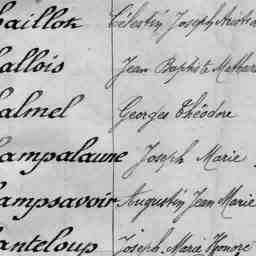 aillok Célestin Joseph
allois Jean Baptiste
almel Georges Théodore
ampalaune Joseph Marie
ampsavoir Augustin Jean Marie
anteloup Joseph Marie Honoré